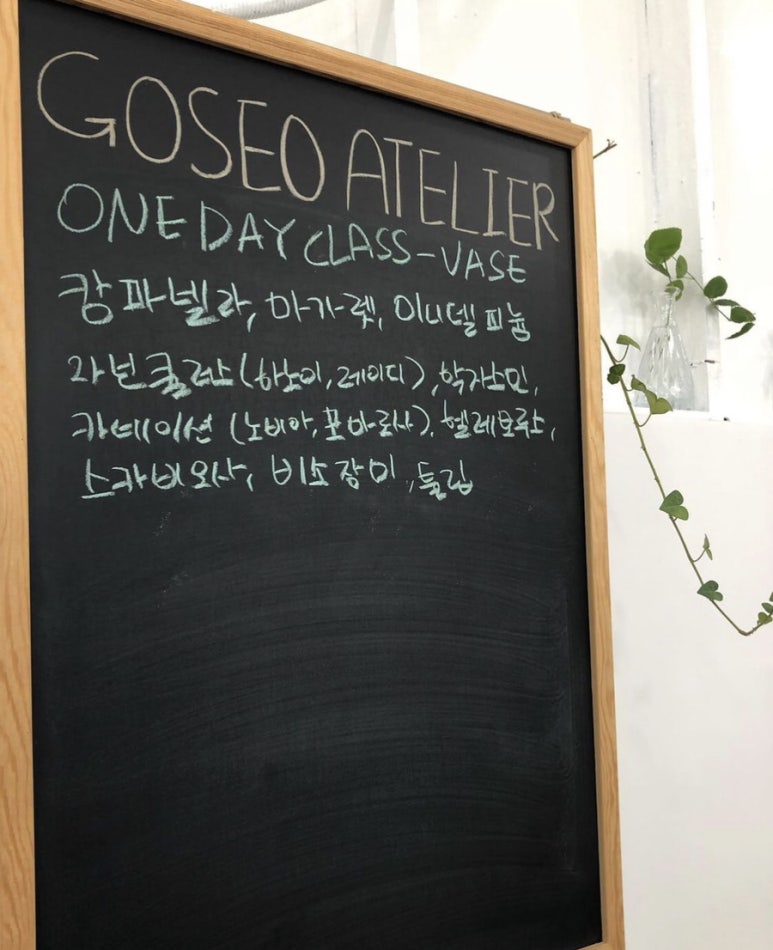 GOSEO ATELIER
ONE DAY CLASS-VASE
캄파넬라, 마가렛, 미니델피늄
라넌큘러스(하노이,레이디),학자스민,
카네이션 (노비아,폴마로사). 헬레보루스,
스카비오사, 비스장미,튤립